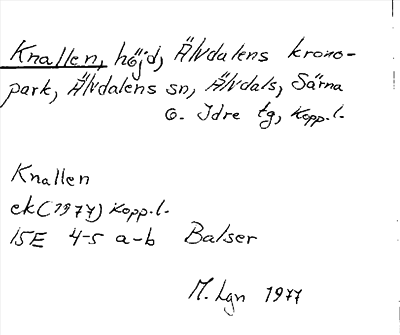 Knallen, höjd, Älvdalens krono-
park, Älvdalens sn, Älvdals, Särna
o. Idre tg, Kopp.l.
Knallen
ek (1977) Kopp.l.
15E 4-5 a-b Balser
M. Lgn 1977